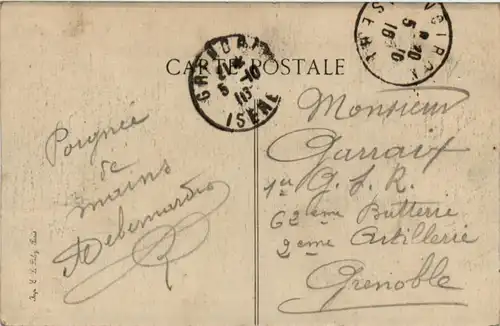 CARTE POSTALE
GRENOBLE
5-10
18
ISERE
5 10
18
ISERE
Poignée
de
mains
Debernardis
Monsieur
1er
62ème Batterie
2ème Artillerie
Grenoble